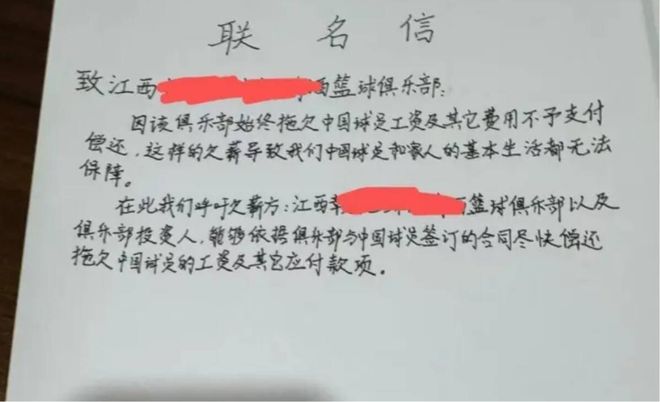 联名信
致江西篮球俱乐部:
因该俱乐部始终拖欠中国球员工资及其它费用不予支付
偿还,这样的欠薪导致我们中国球员和家人的基本生活都无法
保障。
在此我们呼吁欠薪方:江西篮球俱乐部以及
俱乐部投资人,能够依据俱乐部与中国球员签订的合同尽快偿还
拖欠中国球员的工资及其它应付款项。